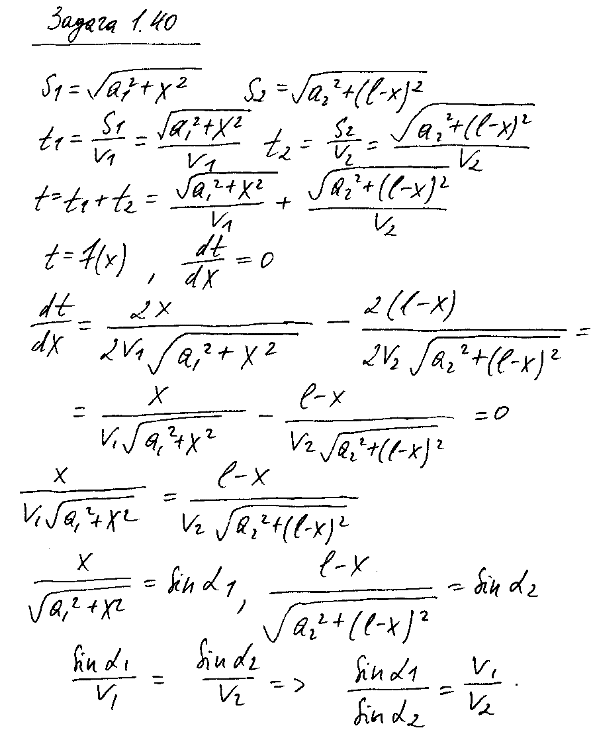 Задача 1.40
S₁ = √(a₁² + x²)   S₂ = √(a₂² + (l-x)²)
t₁ = S₁/V₁ = √(a₁² + x²)/V₁   t₂ = S₂/V₂ = √(a₂² + (l-x)²)/V₂
t = t₁ + t₂ = √(a₁² + x²)/V₁ + √(a₂² + (l-x)²)/V₂
t = f(x) , dt/dx = 0
dt/dx = 2x/(2V₁√(a₁² + x²)) - 2(l-x)/(2V₂√(a₂² + (l-x)²)) =
= x/(V₁√(a₁² + x²)) - (l-x)/(V₂√(a₂² + (l-x)²)) = 0
x/(V₁√(a₁² + x²)) = (l-x)/(V₂√(a₂² + (l-x)²))
x/√(a₁² + x²) = sin α₁ , (l-x)/√(a₂² + (l-x)²) = sin α₂
sin α₁/V₁ = sin α₂/V₂ => sin α₁/sin α₂ = V₁/V₂ .